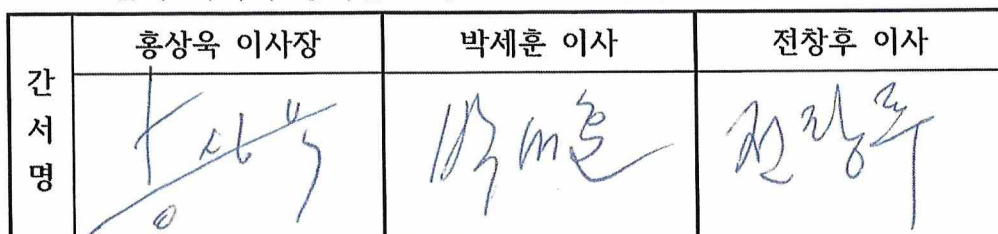 홍상욱 이사장 박세훈 이사 전창후 이사
간서명
홍상욱 박세훈 전창후